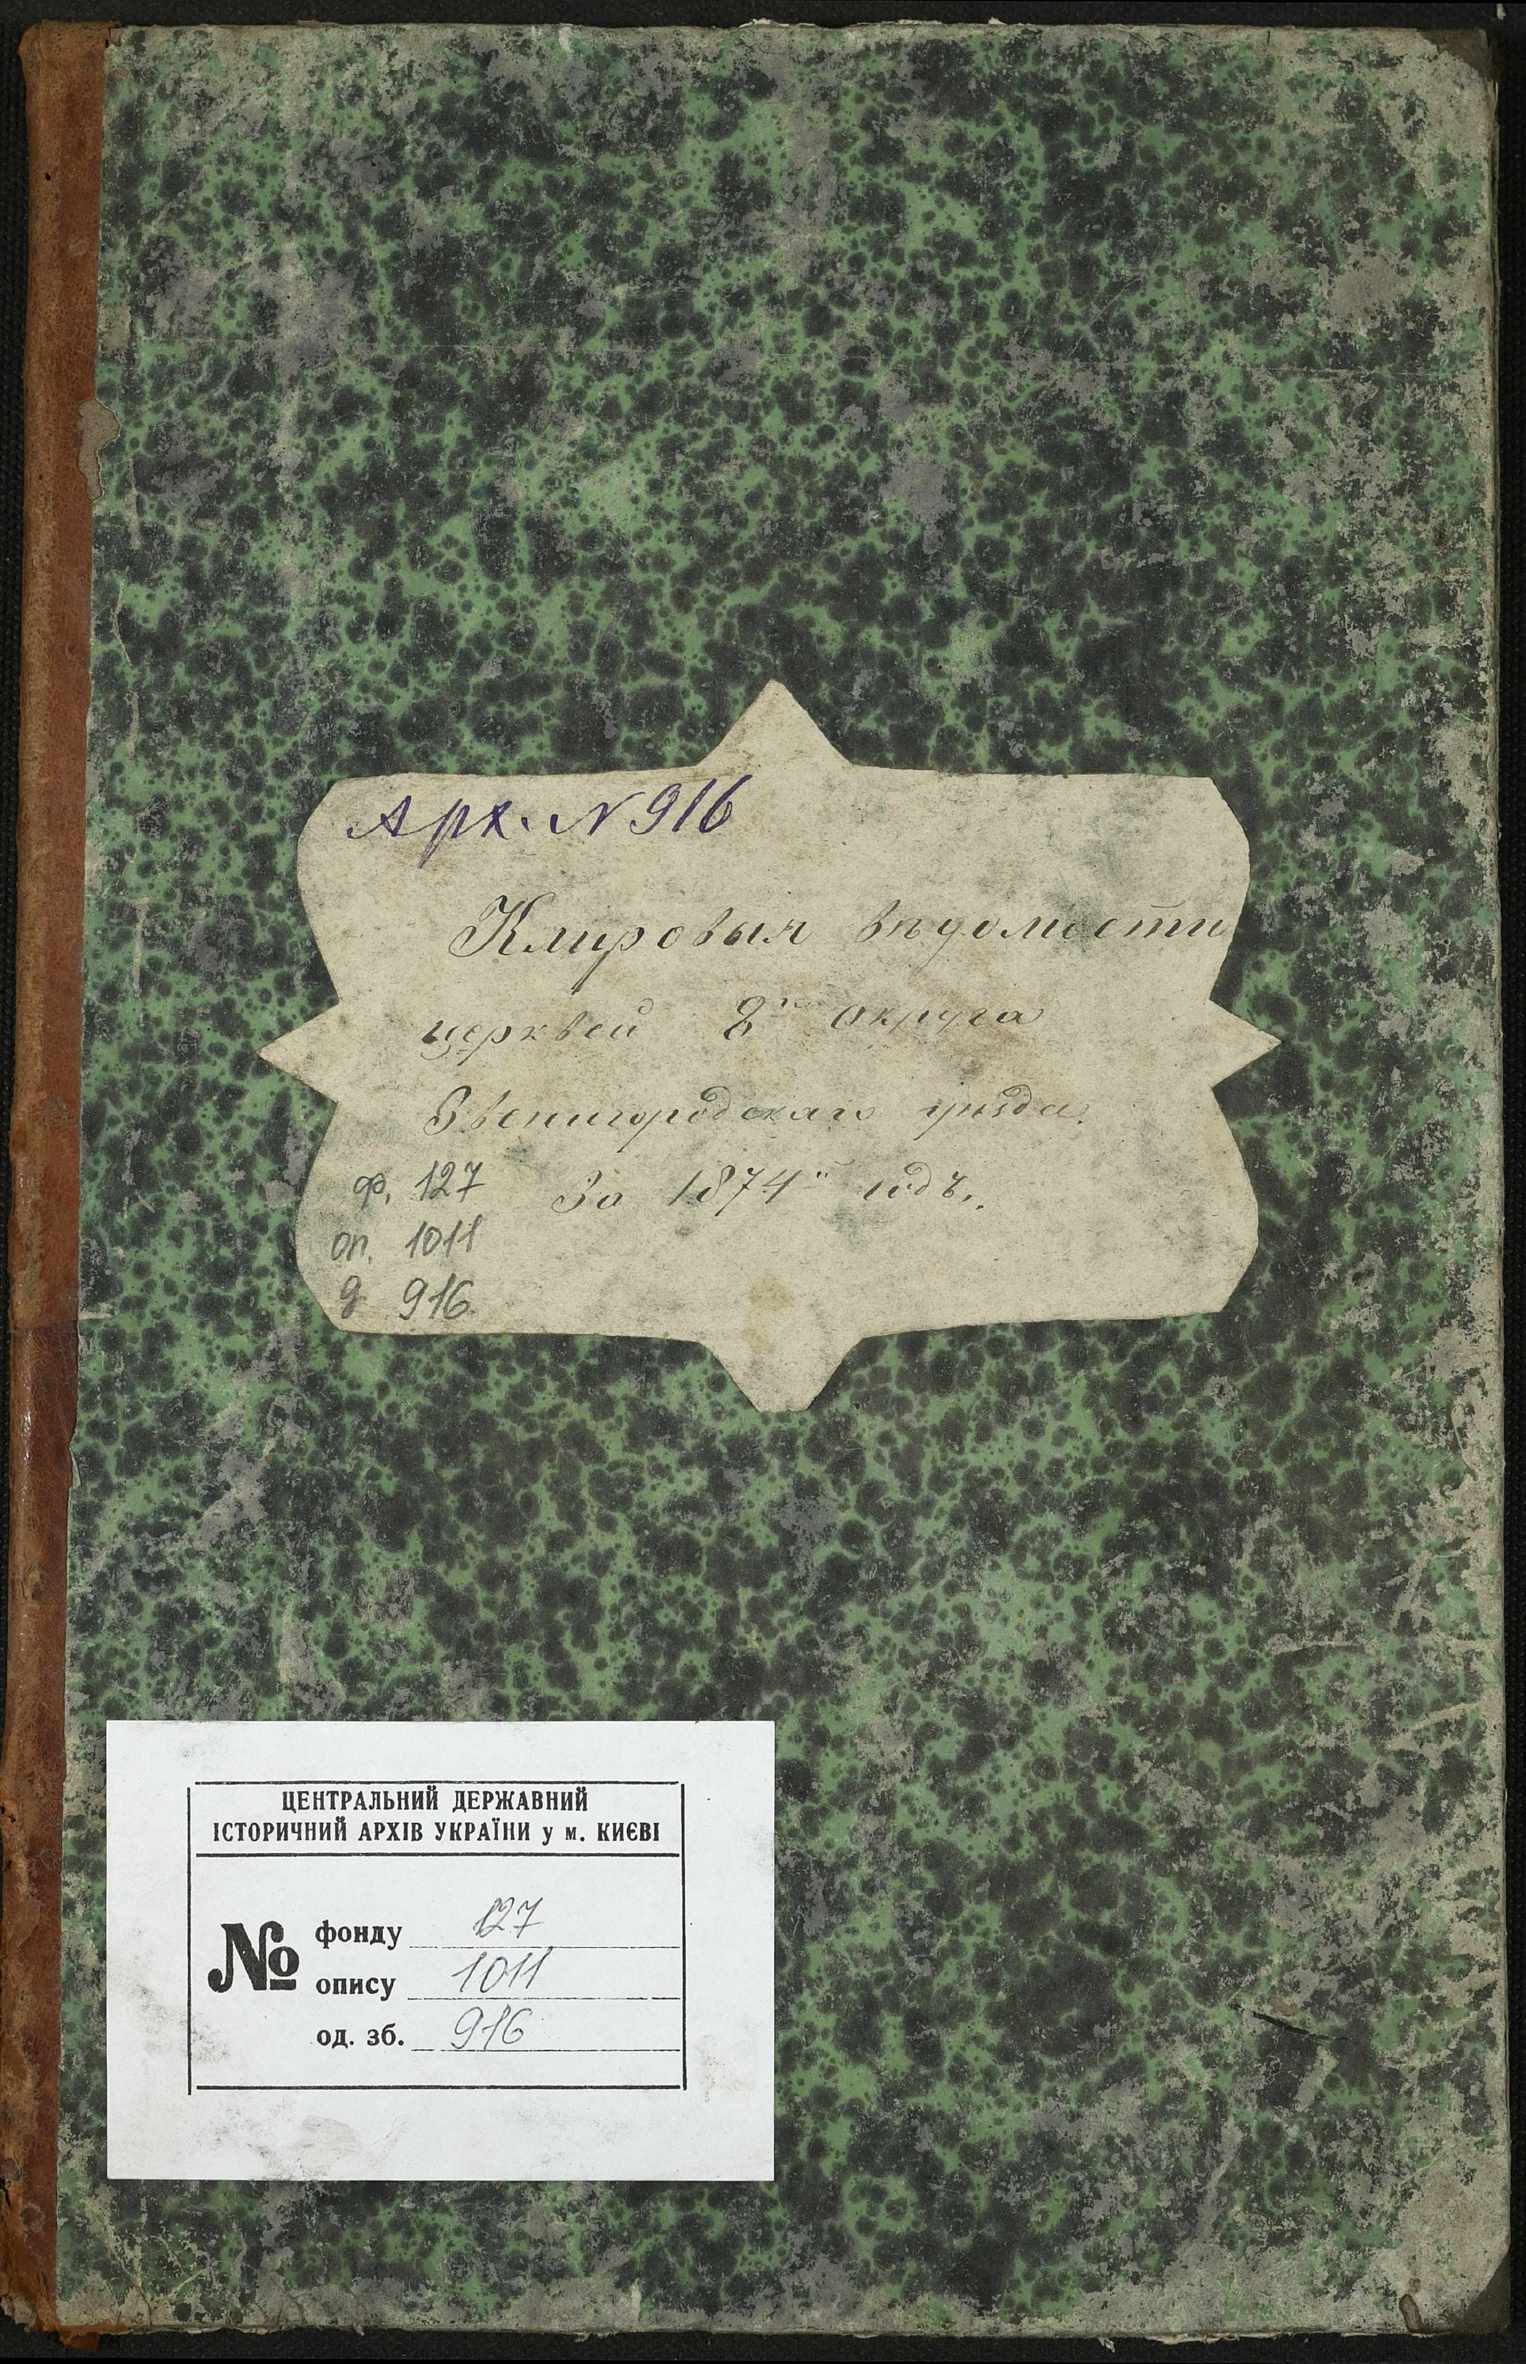 Арх. N 916
Клировыя вѣдомости
церквей 2го округа
Звенигородскаго уѣзда.
За 1874й годъ.
ф. 127
оп. 1011
д 916
ЦЕНТРАЛЬНИЙ ДЕРЖАВНИЙ
ІСТОРИЧНИЙ АРХІВ УКРАЇНИ у м. КИЄВІ
№ фонду 127
опису 1011
од. зб. 916